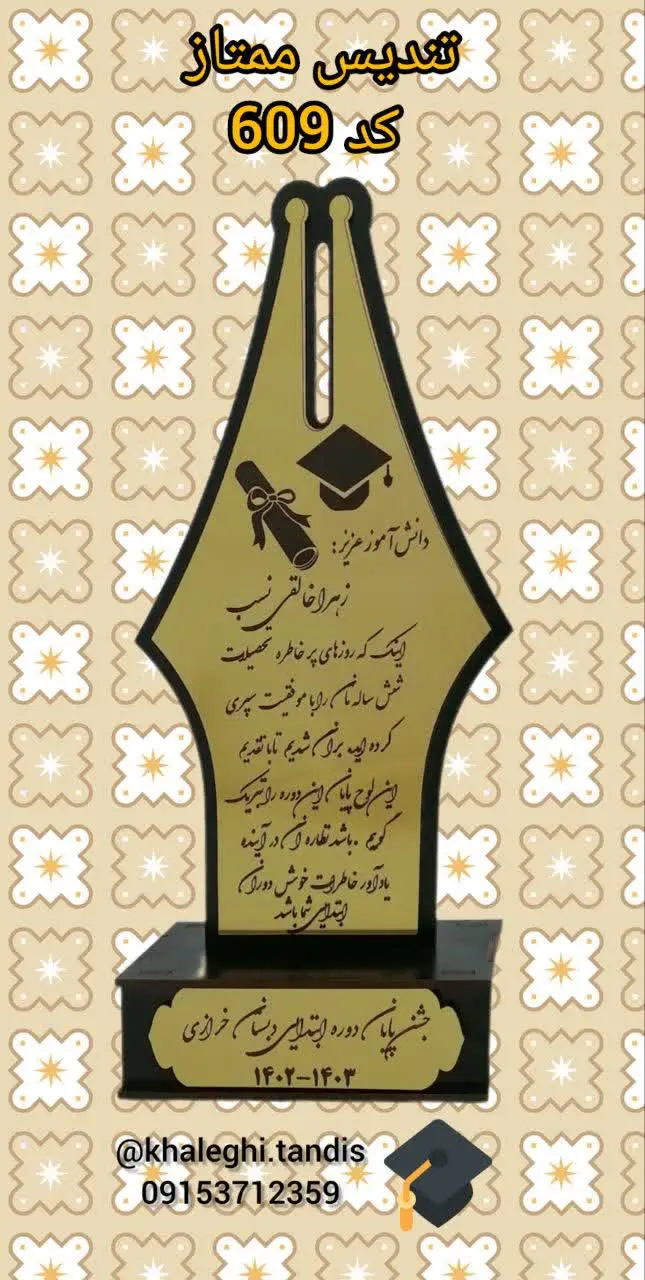 تندیس ممتاز
کد 609
دانش آموز عزیز :
زهرا خالقی نسب
اینک که روزهای پر خاطره تحصیلات
شش ساله تان را با موفقیت سپری
کرده اید بران شدیم تا با تقدیم
این لوح پایان این دوره را تبریک
گویم . باشد نظاره آن در آینده
یادآور خاطرات خوش دوران
ابتدایی شما باشد
جشن پایان دوره ابتدایی دبستان خرازی
۱۴۰۲-۱۴۰۳
@khaleghi.tandis
09153712359